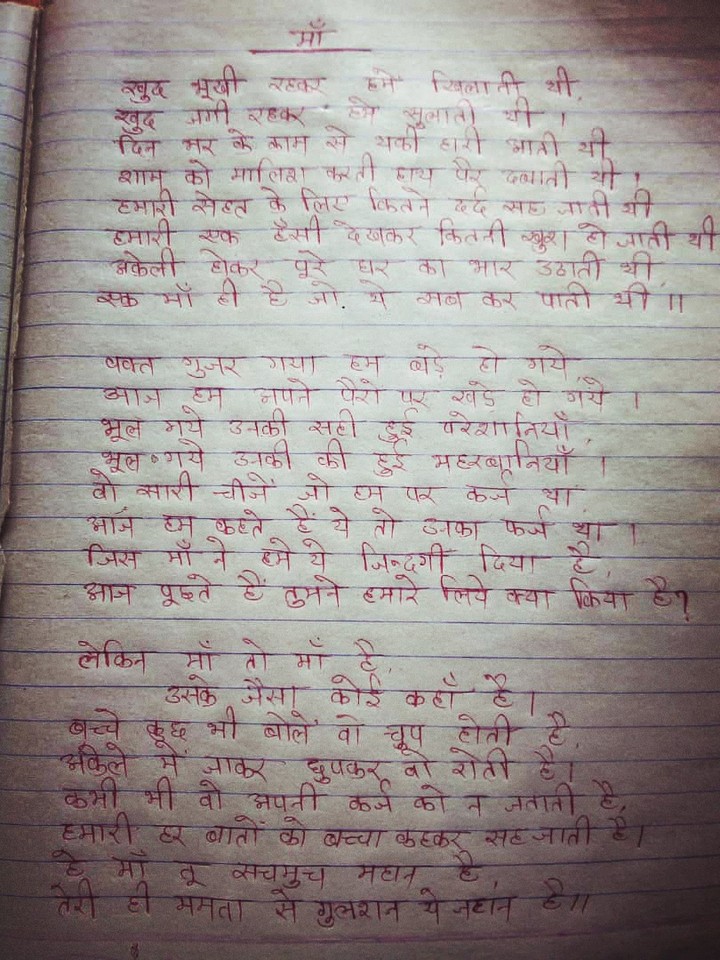 माँ
खुद भूखी रहकर हमे खिलाती थी,
खुद जगी रहकर हमे सुलाती थी ।
दिन भर के काम से थकी हारी आती थी
शाम को मालिश करती हाथ पैर दबाती थी ।
हमारी सेहत के लिए कितने दर्द सह जाती थी
हमारी एक हँसी देखकर कितनी खुश हो जाती थी
अकेली होकर पूरे घर का भार उठाती थी,
एक माँ ही है जो ये सब कर पाती थी ।।
वक्त गुजर गया हम बड़े हो गये,
आज हम अपने पैरो पर खड़े हो गये ।
भूल गये उनकी सही हुई परेशानियाँ,
भूल गये उनकी की हुई महरबानियाँ ।
वो सारी चीजें जो हम पर कर्ज था,
आज हम कहते हैं ये तो उनका फर्ज था ।
जिस माँ ने हमे ये जिन्दगी दिया है,
आज पूछते हैं तुमने हमारे लिये क्या किया है?
लेकिन माँ तो माँ है,
उसके जैसा कोई कहाँ है ।
बच्चे कुछ भी बोलें वो चुप होती है,
अकेले में जाकर छुपकर वो रोती है ।
कभी भी वो अपनी कर्ज को न जताती है,
हमारी हर बातों को बच्चा कहकर सह जाती है ।
हे माँ तू सचमुच महान है,
तेरी ही ममता से गुलशन ये जहान है ।।